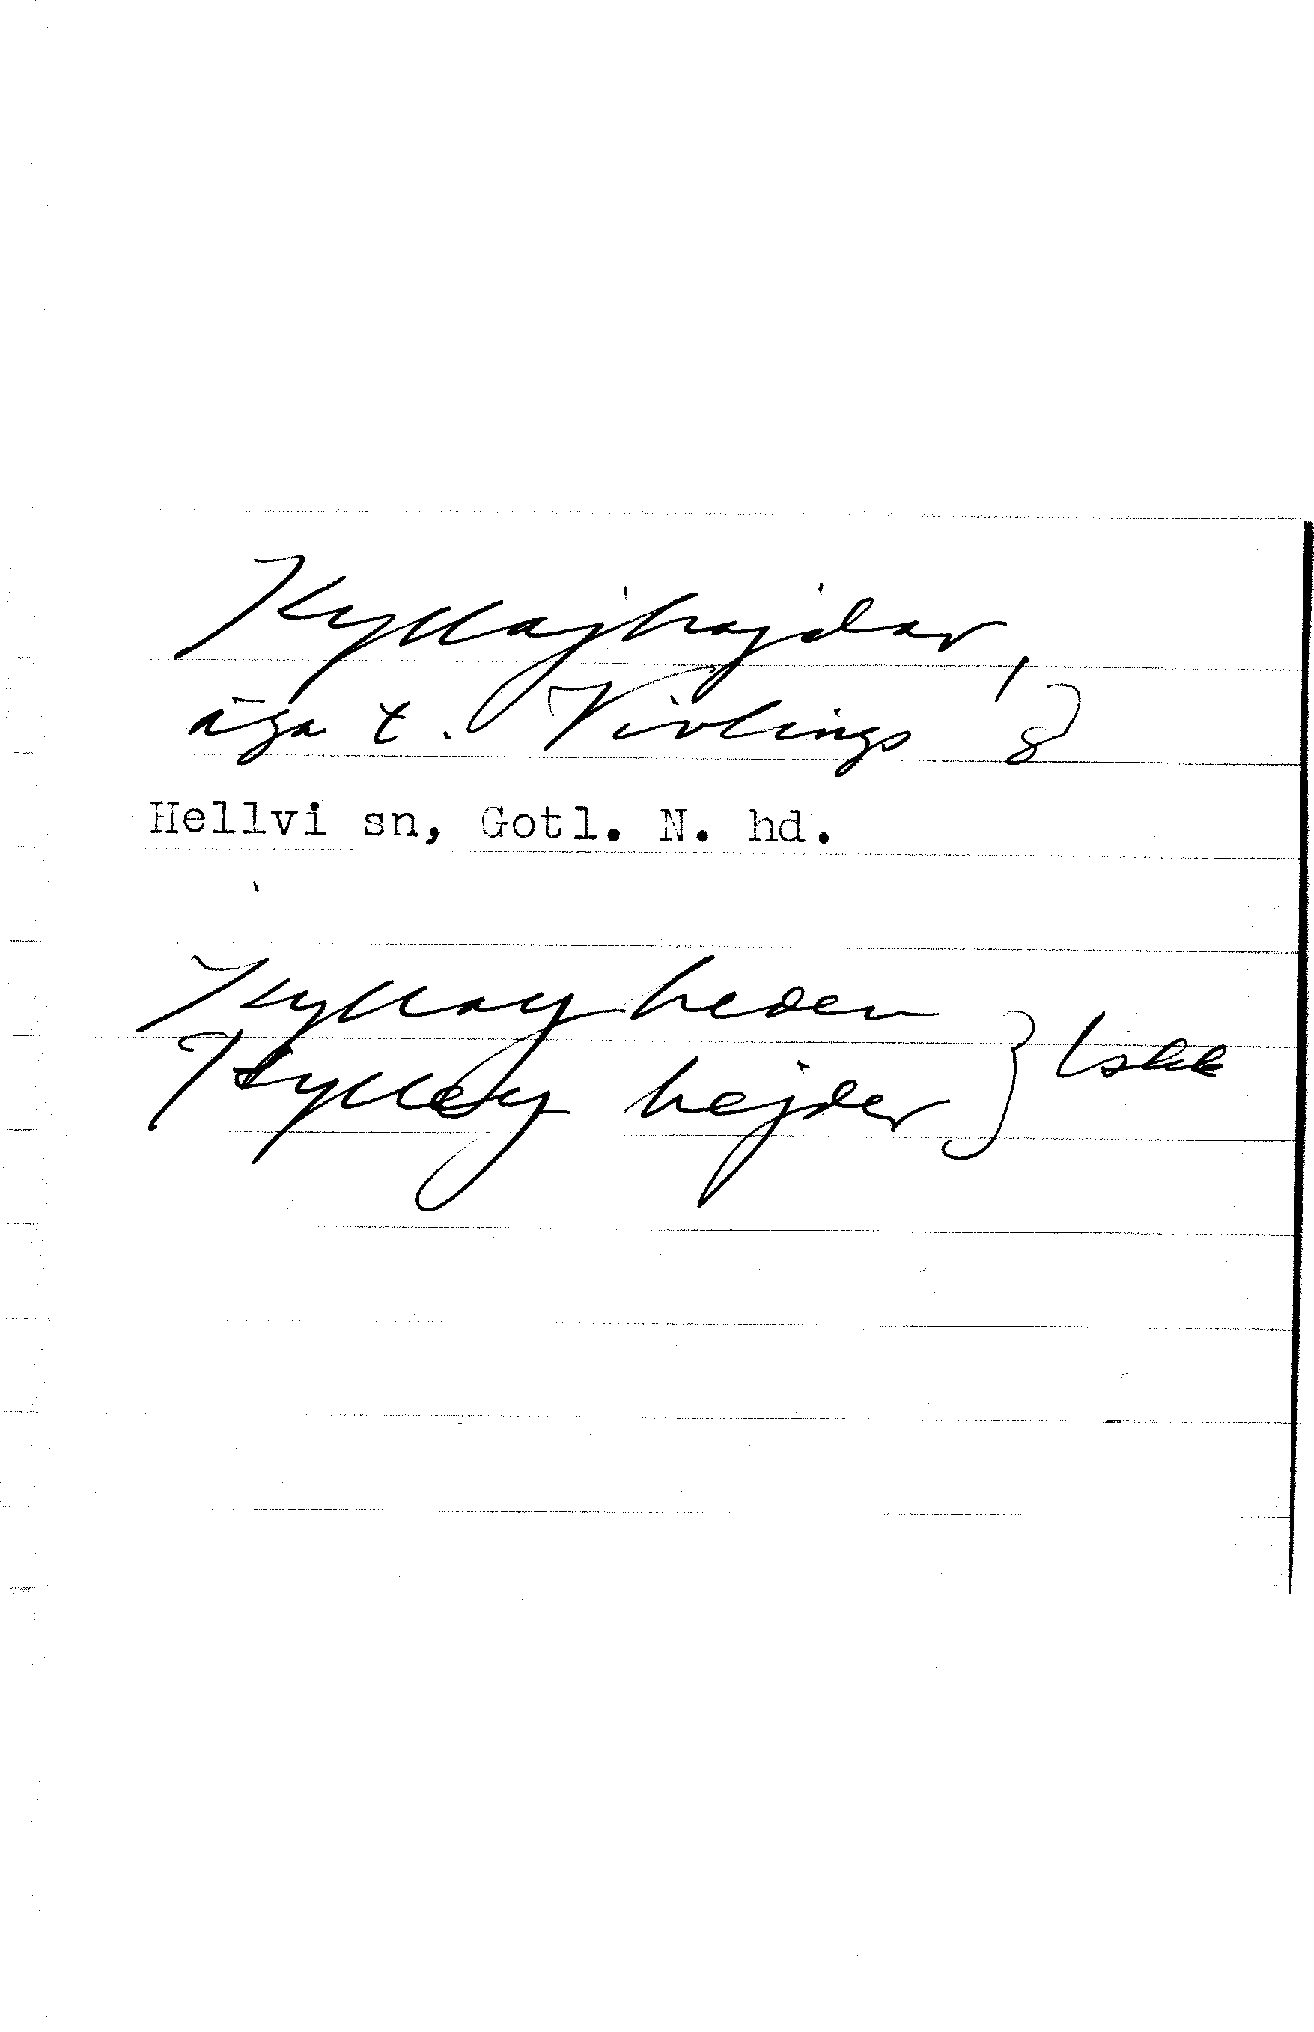 Kyllajhajdar,
äga t. Vivlings
Hellvi sn, Gotl. N. hd.
Kyllay heden
Kylley hejder